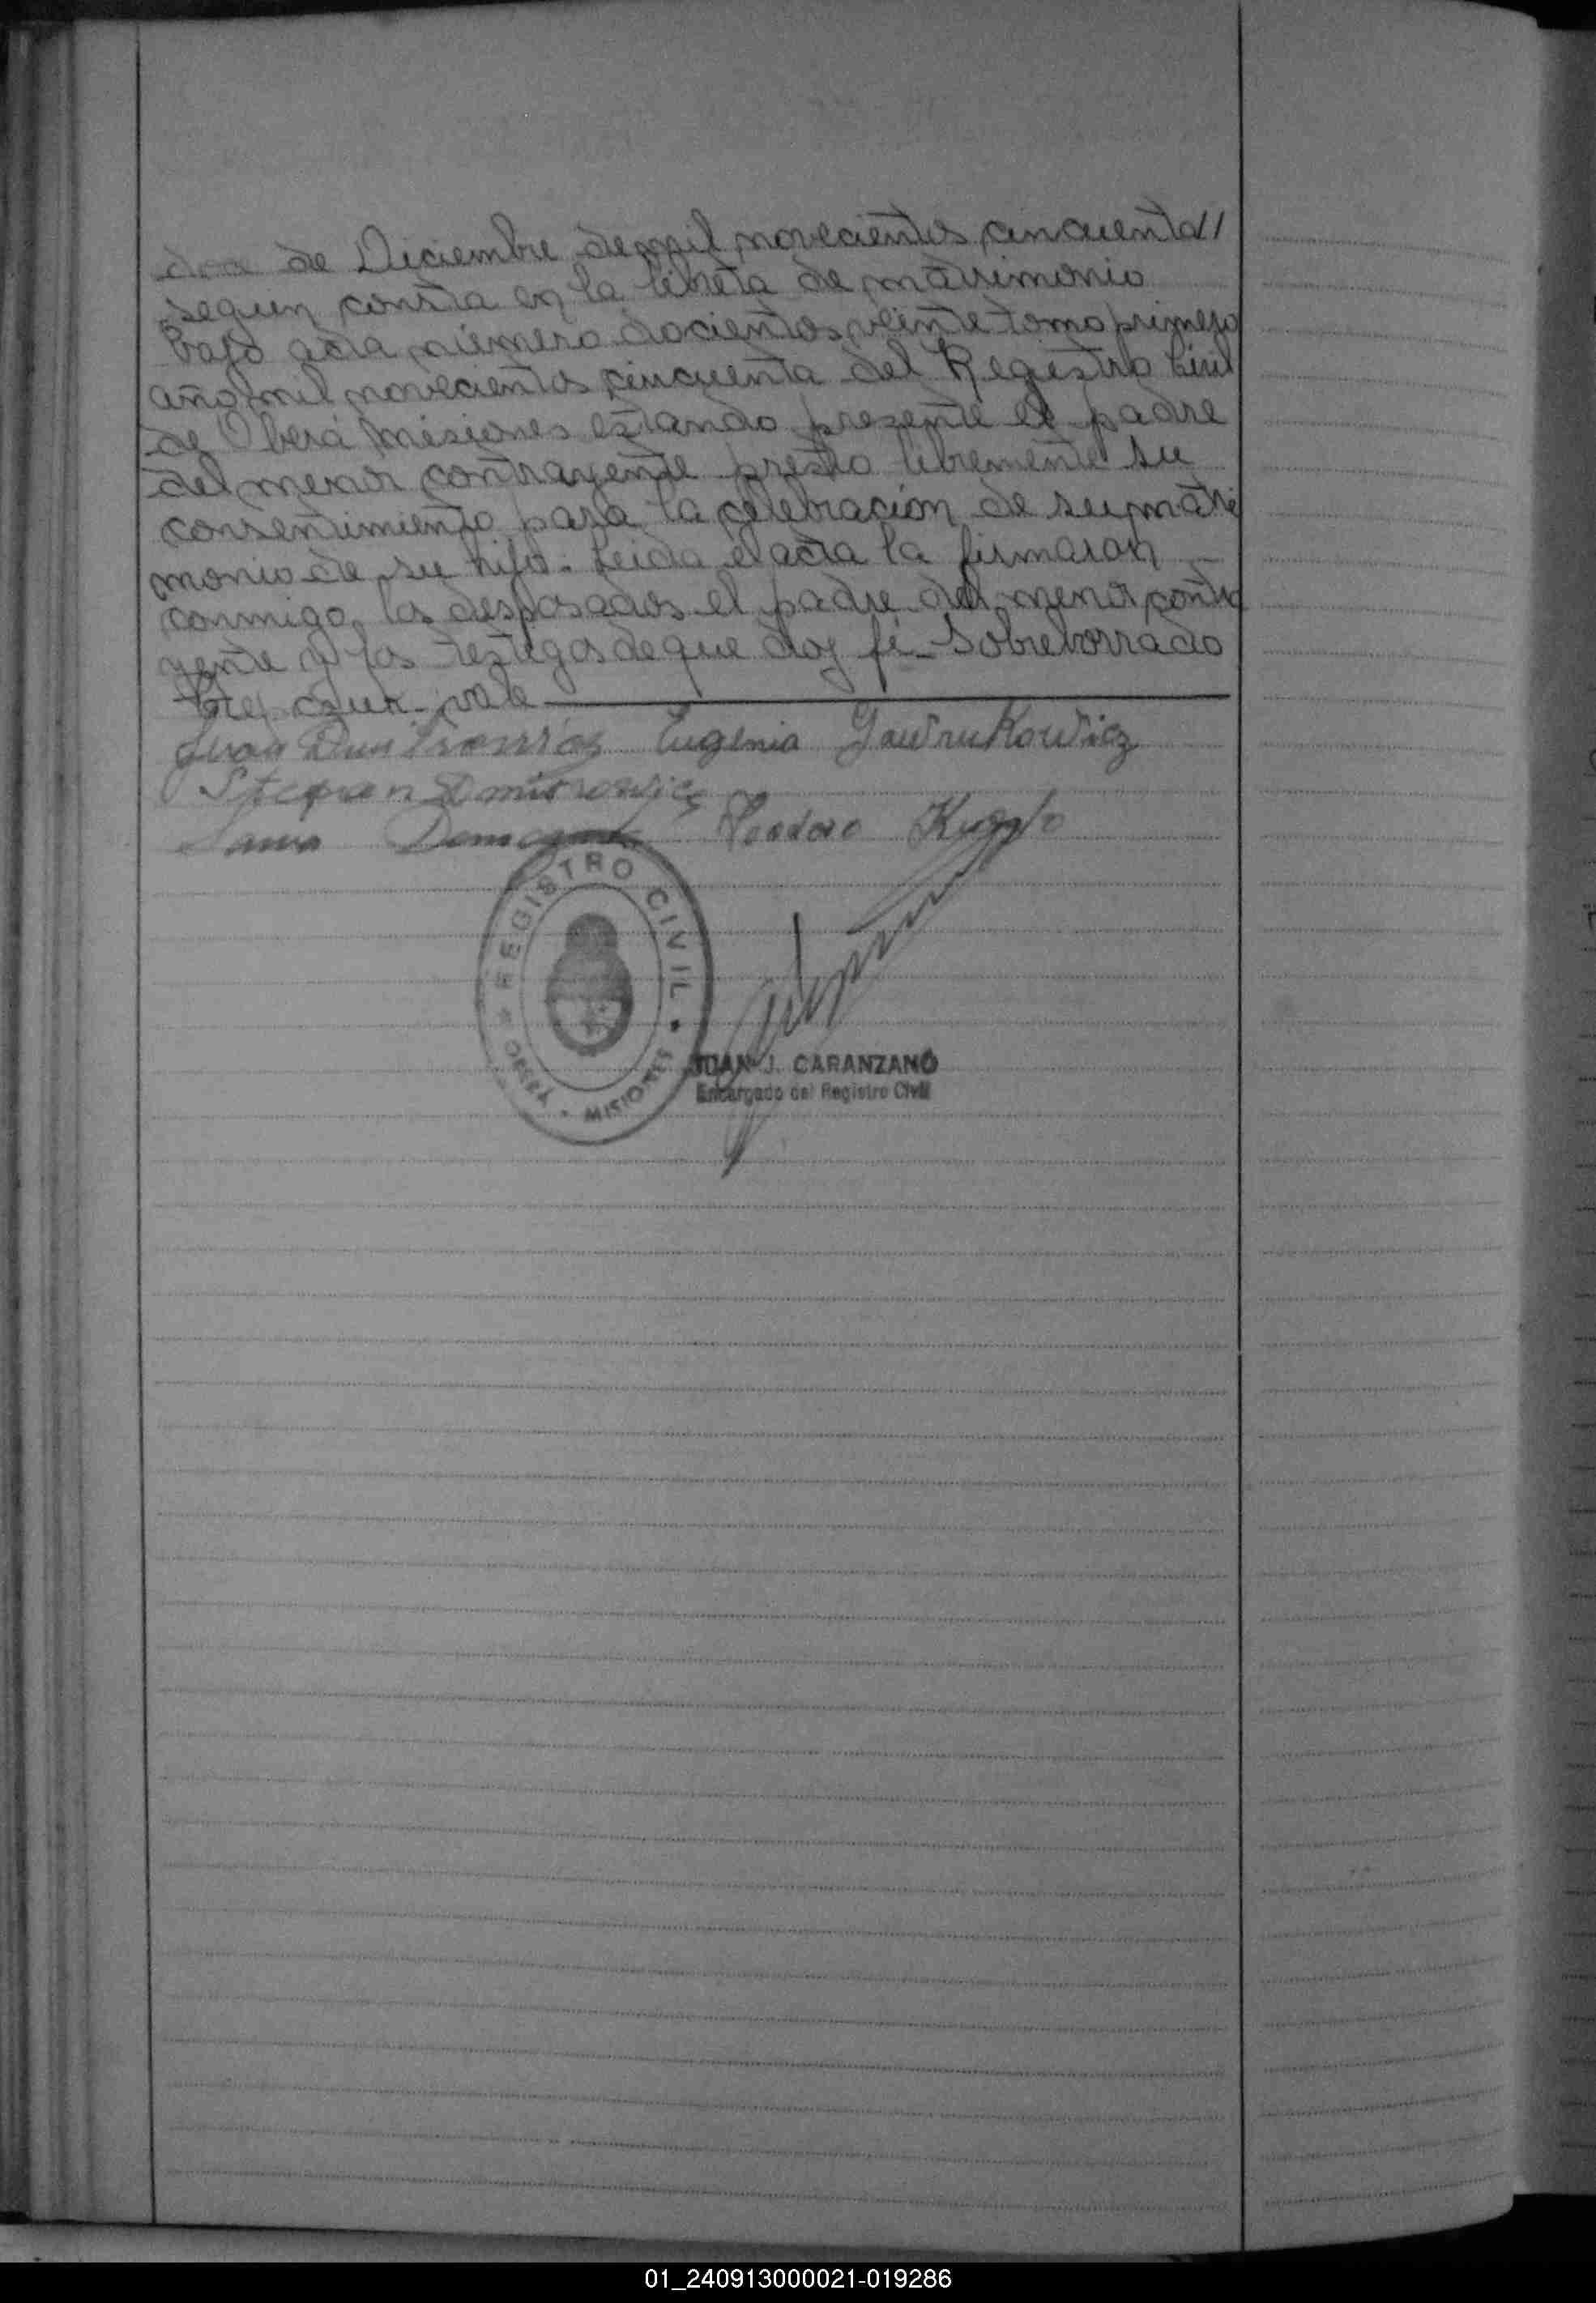 de Diciembre de mil novecientos cincuenta//
segun consta en la libreta de matrimonio
bajo acta número docientos veinte tomo primero
año mil novecientos cincuenta del Registro Civil
de Oberá Misiones estando presente el padre
del menor contrayente presto libremente su
consentimiento para la celebración de su matri
monio de su hijo. Leida el acta la firmaron
conmigo, los desposados el padre del menor contra
yente y los testigos de que doy fé_ Sobreborrado
vale
Juan Eugenia Gawrukowicz
Stepan Dmitrowicz
Teodoro
REGISTRO CIVIL
OBERA • MISIONES
JUAN J. CARANZANO
Encargado del Registro Civil
01_240913000021-019286